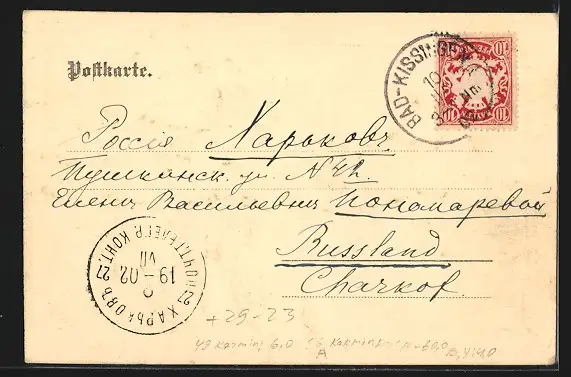 Postkarte.
BAD-KISSINGEN
10
Россія Харьковъ
Пушкинск. ул. N 42.
Елени Васильевни Пономаревой
Russland
Charkof.
ХАРЬКОВЪ ПОЧТ.ТЕЛЕГР. КОНТ.
27 27
19-02
VII
+29-23